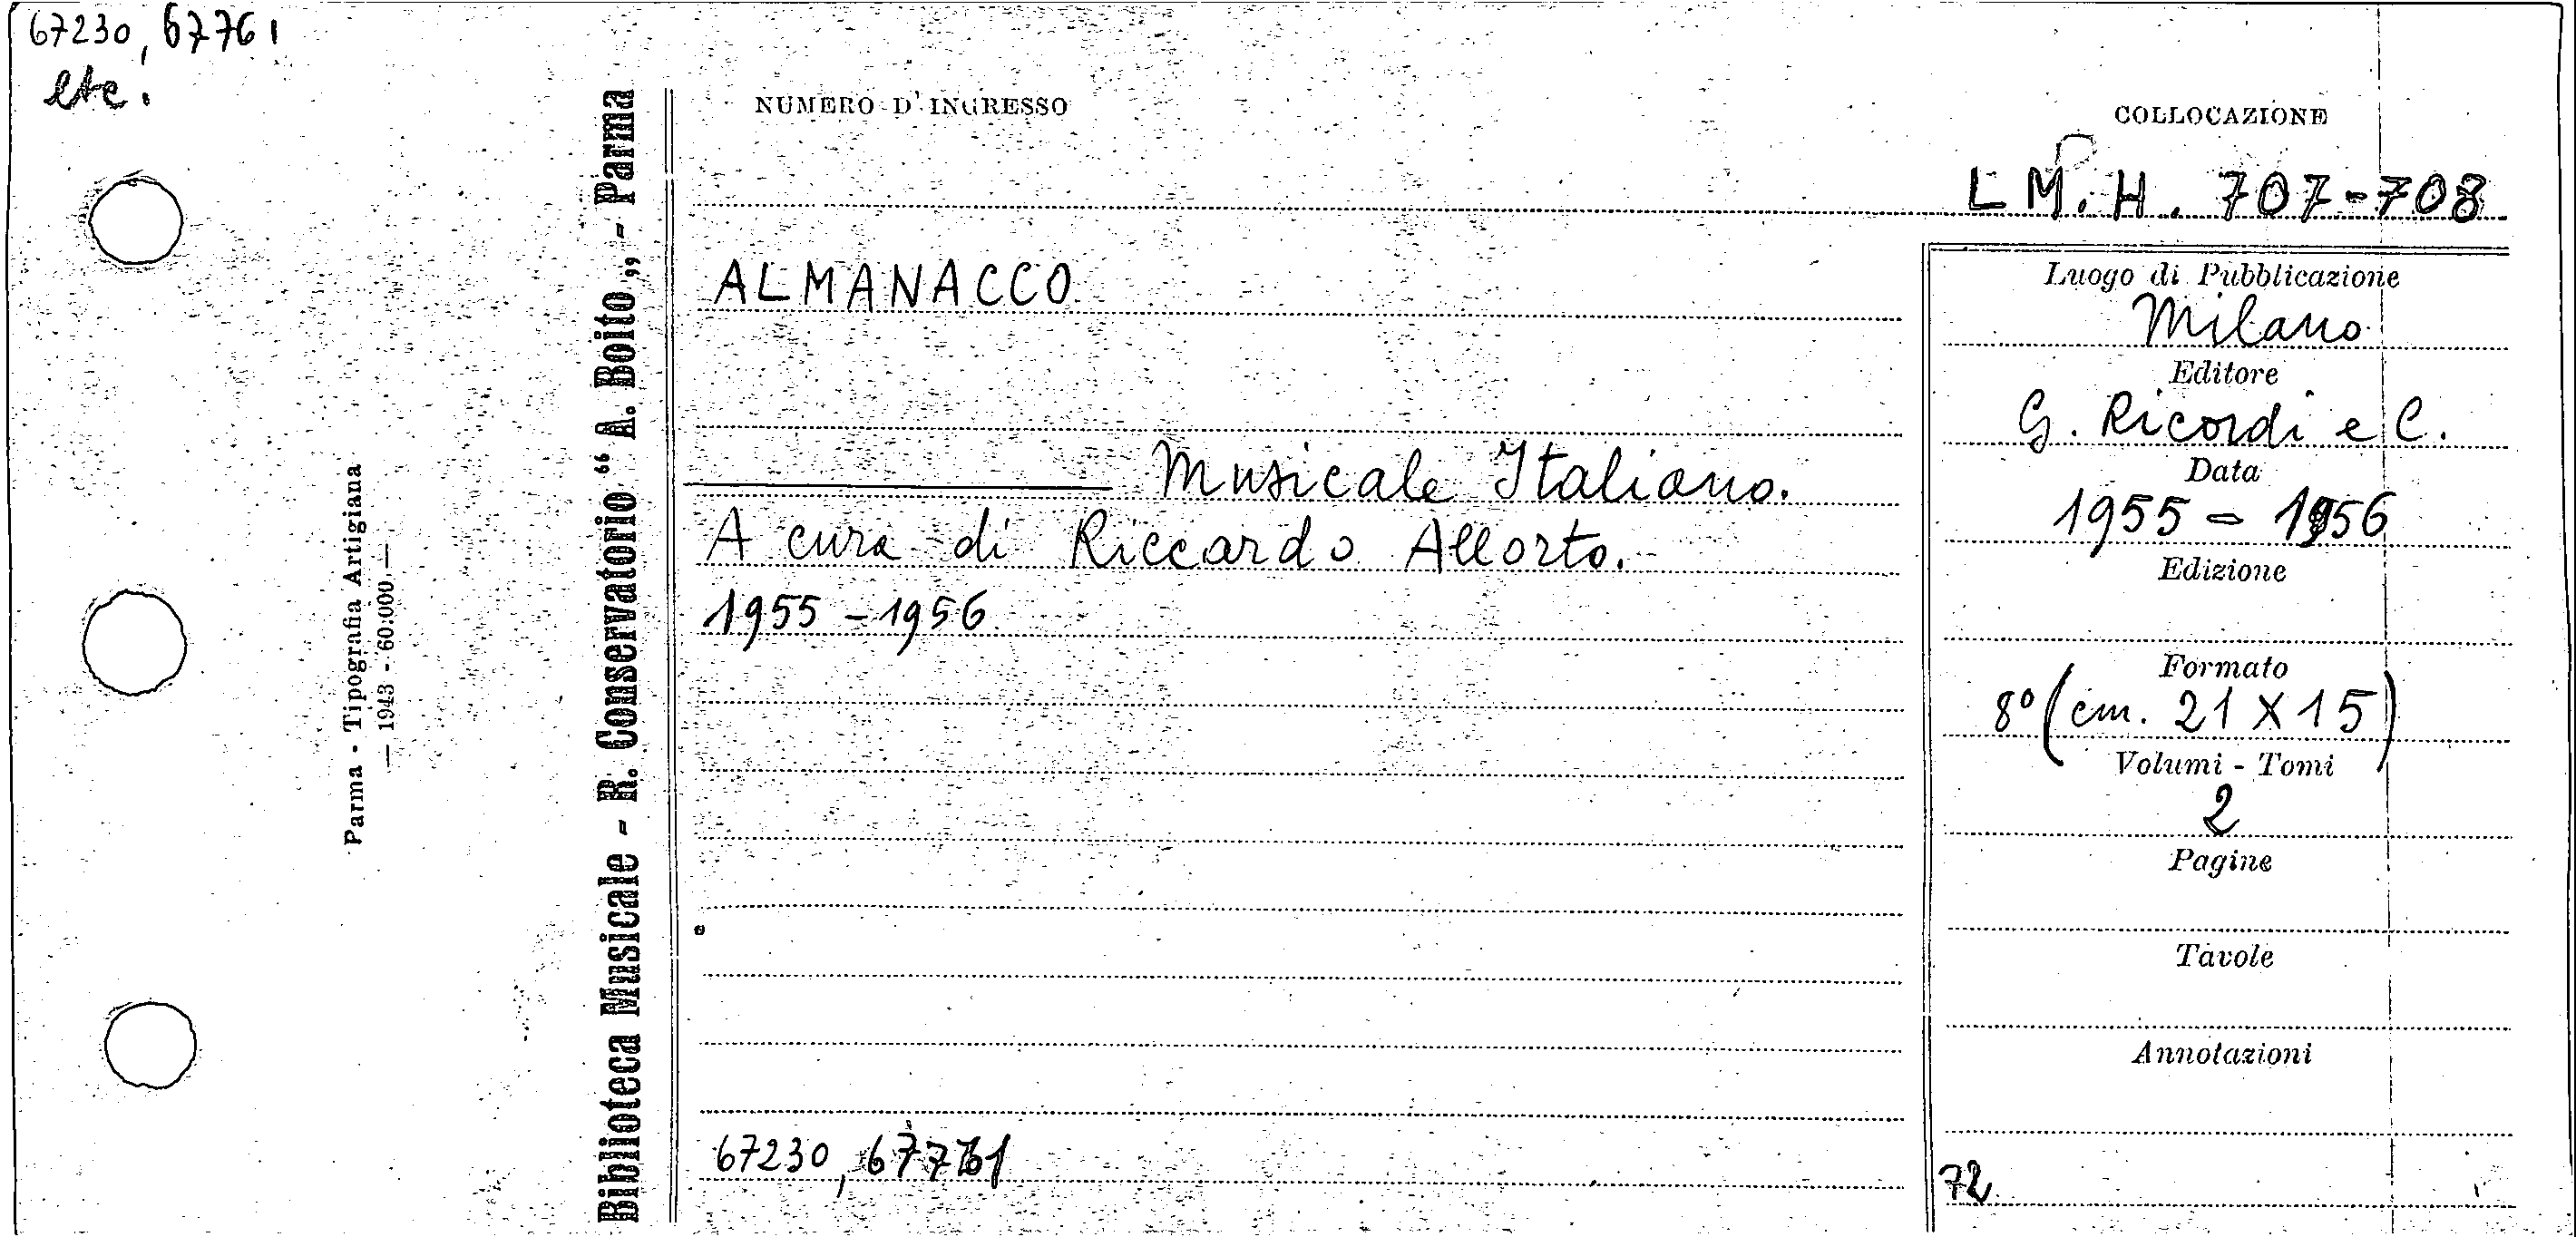 67230, 67761
etc.
Parma - Tipografia Artigiana
— 1943 - 60.000 —
Biblioteca Musicale - R. Conservatorio “ A. Boito „ - Parma
NUMERO D' INGRESSO
COLLOCAZIONE
L M. H. 707-708
ALMANACCO
Musicale Italiano.
A cura di Riccardo Allorto.
1955 - 1956
67230, 67761
Luogo di Pubblicazione
Milano
Editore
G. Ricordi e C.
Data
1955 - 1956
Edizione
Formato
8° (cm. 21 X 15)
Volumi - Tomi
2
Pagine
Tavole
Annotazioni
72